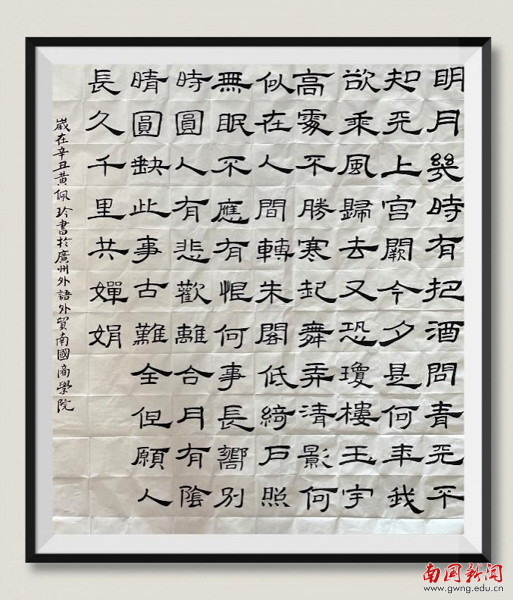 明月幾時有把酒問青天不
知天上宮闕今夕是何年我
欲乘風歸去又恐瓊樓玉宇
高處不勝寒起舞弄清影何
似在人間轉朱閣低綺戶照
無眠不應有恨何事長嚮別
時圓人有悲歡離合月有陰
晴圓缺此事古難全但願人
長久千里共嬋娟
歲在辛丑黃佩玲書於廣州外語外貿南國商學院
南国新闻
www.gwng.edu.cn